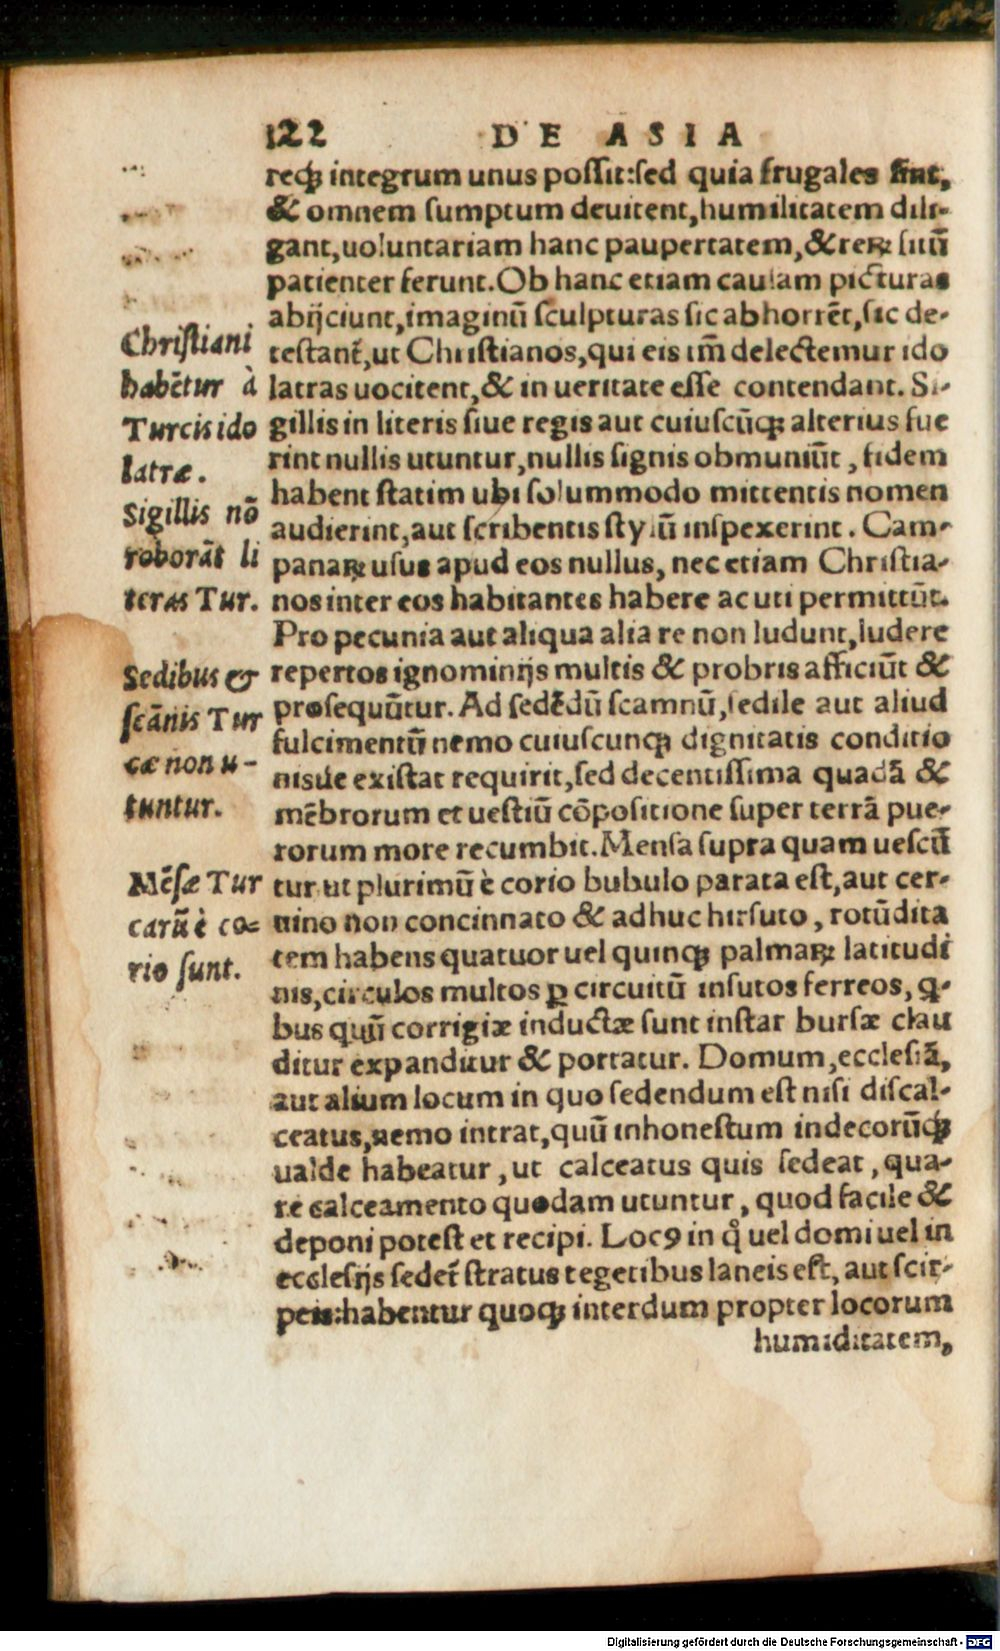 122 DE ASIA
req́ꝫ integrum unus possit:sed quia frugales sint,
& omnem sumptum deuitent,humilitatem dili-
gant,uoluntariam hanc paupertatem,&reꝝ sitū
patienter ferunt.Ob hanc etiam causam picturas
abijciunt,imaginū sculpturas sic abhorrēt,sic de-
testant̃,ut Christianos,qui eis im̃ delectemur ido
latras uocitent,& in ueritate esse contendant. Si-
gillis in literis siue regis aut cuiuscūq́ꝫ alterius fue
rint nullis utuntur,nullis signis obmuniūt, fidem
habent statim ubi solummodo mittentis nomen
audierint,aut scribentis stylū inspexerint. Cam-
panaꝝ usus apud eos nullus, nec etiam Christia-
nos inter eos habitantes habere ac uti permittūt.
Pro pecunia aut aliqua alia re non ludunt,ludere
repertos ignominijs multis & probris afficiūt &
prosequūtur. Ad sedēdū scamnū,sedile aut aliud
fulcimentū nemo cuiuscunq́ꝫ dignitatis conditio
nisúe existat requirit,sed decentissima quadā &
mēbrorum et uestiū cōpositione super terrā pue-
rorum more recumbit.Mensa supra quam uescū
tur ut plurimū è corio bubulo parata est,aut cer-
uino non concinnato & adhuc hirsuto, rotūdita
tem habens quatuor uel quinq́ꝫ palmaꝝ latitudi
nis,circulos multos ꝑ circuitū insutos ferreos, q̃-
bus quū corrigiæ inductæ sunt instar bursæ clau
ditur expanditur & portatur. Domum,ecclesiā,
aut alium locum in quo sedendum est nisi discal-
ceatus,nemo intrat,quū inhonestum indecorūq́ꝫ
ualde habeatur, ut calceatus quis sedeat, qua-
re calceamento quodam utuntur, quod facile &
deponi potest et recipi. Locꝰ in q̊ uel domi uel in
ecclesijs sedet̃ stratus tegetibus laneis est, aut scir-
peis:habentur quoq́ꝫ interdum propter locorum
humiditatem,
Christiani
habētur à
Turcis ido
latræ.
Sigillis nō
roborāt li
teras Tur.
Sedibus &
scānis Tur
cæ non u-
tuntur.
Mēsæ Tur
carū è co-
rio sunt.
Digitalisierung gefördert durch die Deutsche Forschungsgemeinschaft - DFG